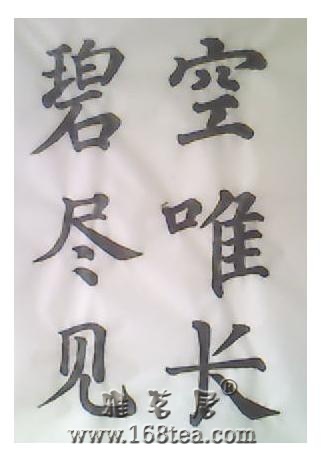 碧空
尽唯
见长
雅茗居®
www.168tea.com